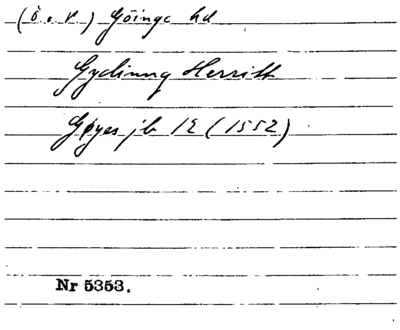 (Ö. o. V.) Göinge hd
Gydinng Herritt
Gøyes jb 12 (1552)
Nr 5353.